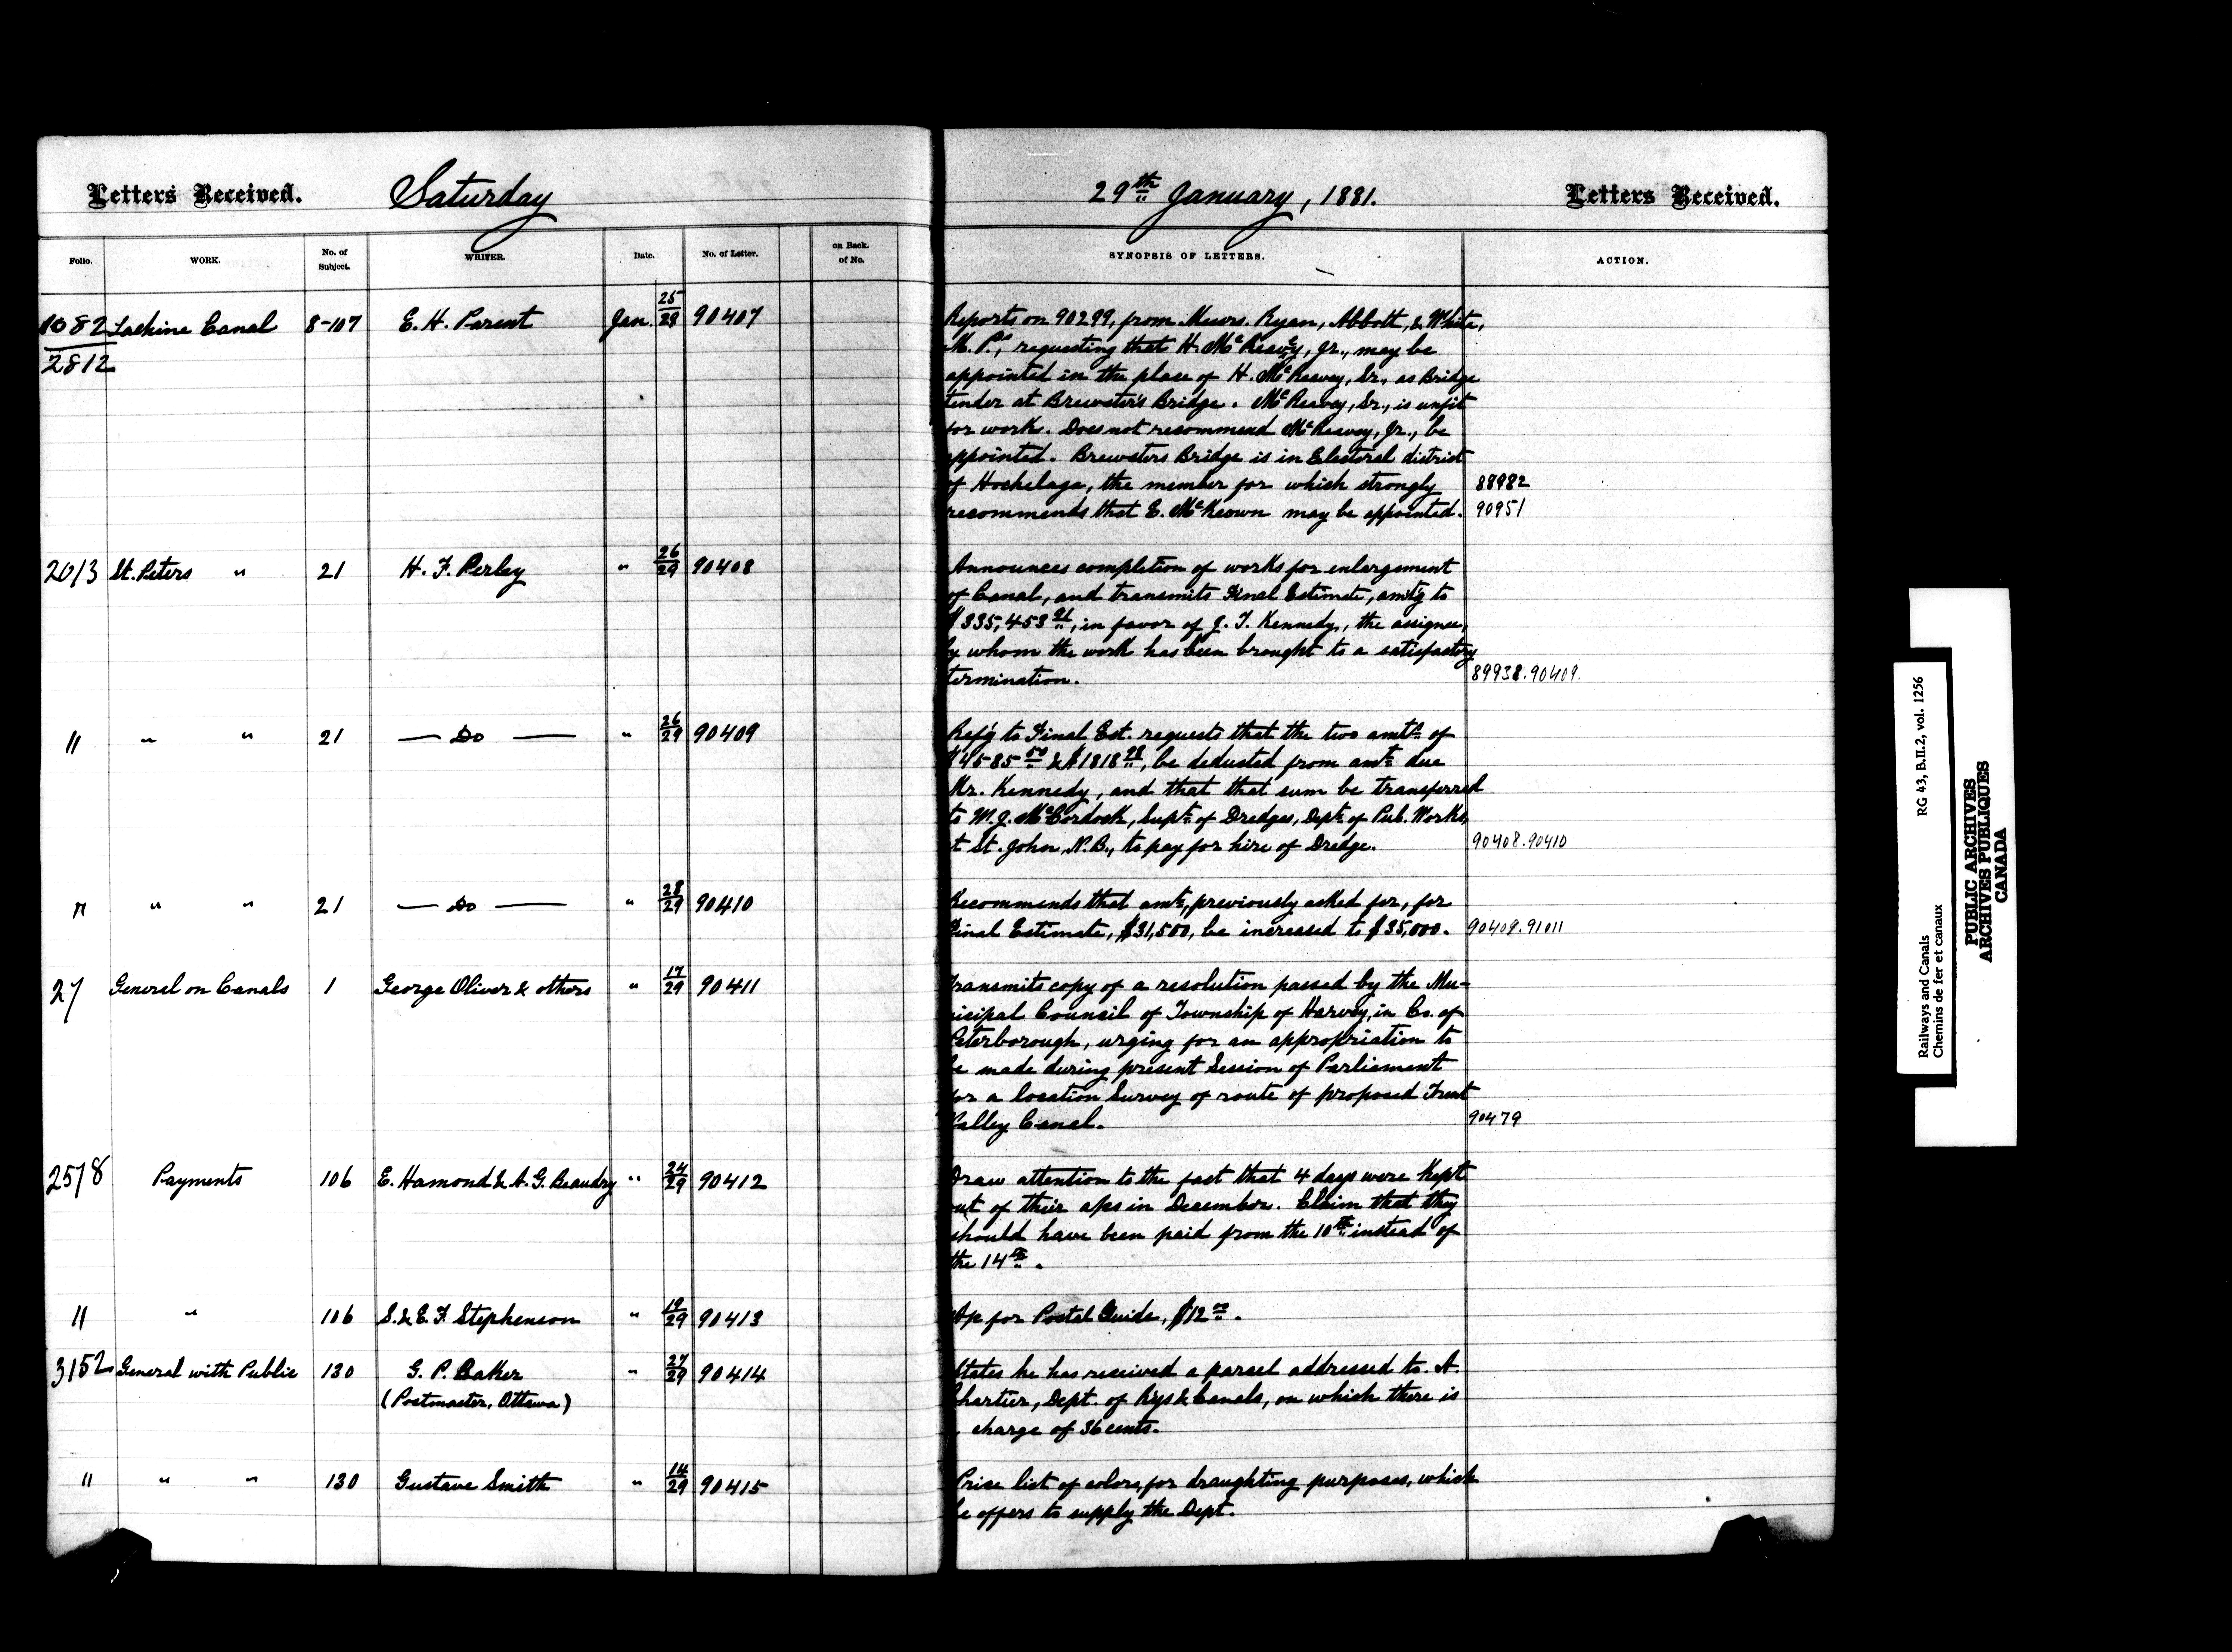 Letters Received. Saturday 29th January, 1881. Letters Received.
Folio. WORK. No. of Subject. WRITER. Date. No. of Letter. on Back. of No. SYNOPSIS OF LETTERS. ACTION.
1082 Lachine Canal 8-107 E. H. Parent Jan. 25/29 90407 Reports on 90299, from Messrs. Ryan, Abbott, & White,
2812 M. P.s, requesting that H. McReavy, Jr., may be
appointed in the place of H. McReavey, Sr., as Bridge
tender at Brewster's Bridge. McReavey, Sr., is unfit
for work. Does not recommend McReavey, Jr., be
appointed. Brewsters Bridge is in Electoral district
of Hochelaga, the member for which strongly 88982
recommends that E. McKeown may be appointed. 90951
2013 St. Peters " 21 H. F. Perley " 26/29 90408 Announces completion of works for enlargement
of Canal, and transmits Final Estimate, amt'g to
$335,453 91, in favor of J. T. Kennedy, the assignee,
by whom the work has been brought to a satisfactory
termination. 89938.90409.
" " " 21 — Do — " 26/29 90409 Ref'g to Final Est. requests that the two amts. of
$4585 50 & $1818 28, be deducted from amt. due
Mr. Kennedy, and that that sum be transferred
to W. J. McCordock, Supt. of Dredges, Dept. of Pub. Works,
at St. John, N.B., to pay for hire of Dredge. 90408.90410
" " " 21 — Do — " 28/29 90410 Recommends that amt., previously asked for, for
Final Estimate, $31,500, be increased to $35,000. 90409.91011
27 General on Canals 1 George Oliver & others " 17/29 90411 Transmits copy of a resolution passed by the Mu-
nicipal Council of Township of Harvey, in Co. of
Peterborough, urging for an appropriation to
be made during present Session of Parliament
for a location Survey of route of proposed Trent
Valley Canal. 90479
2578 Payments 106 E. Hamond & A. G. Beaudry " 24/29 90412 Draw attention to the fact that 4 days were Kept
out of their a/cs in December. Claim that they
should have been paid from the 10th instead of
the 14th.
" " 106 S. & E. F. Stephenson " 19/29 90413 A/c for Postal Guide, $12 00.
3152 General with Public 130 G. P. Baker " 27/29 90414 States he has received a parcel addressed to A.
(Postmaster, Ottawa) Chartier, Dept. of Rys & Canals, on which there is
charge of 36 cents.
" " " 130 Gustave Smith " 14/29 90415 Price list of colors, for draughting purposes, which
he offers to supply the Dept.
RG 43, B.II.2, vol. 1256
Railways and Canals
Chemins de fer et canaux
PUBLIC ARCHIVES
ARCHIVES PUBLIQUES
CANADA